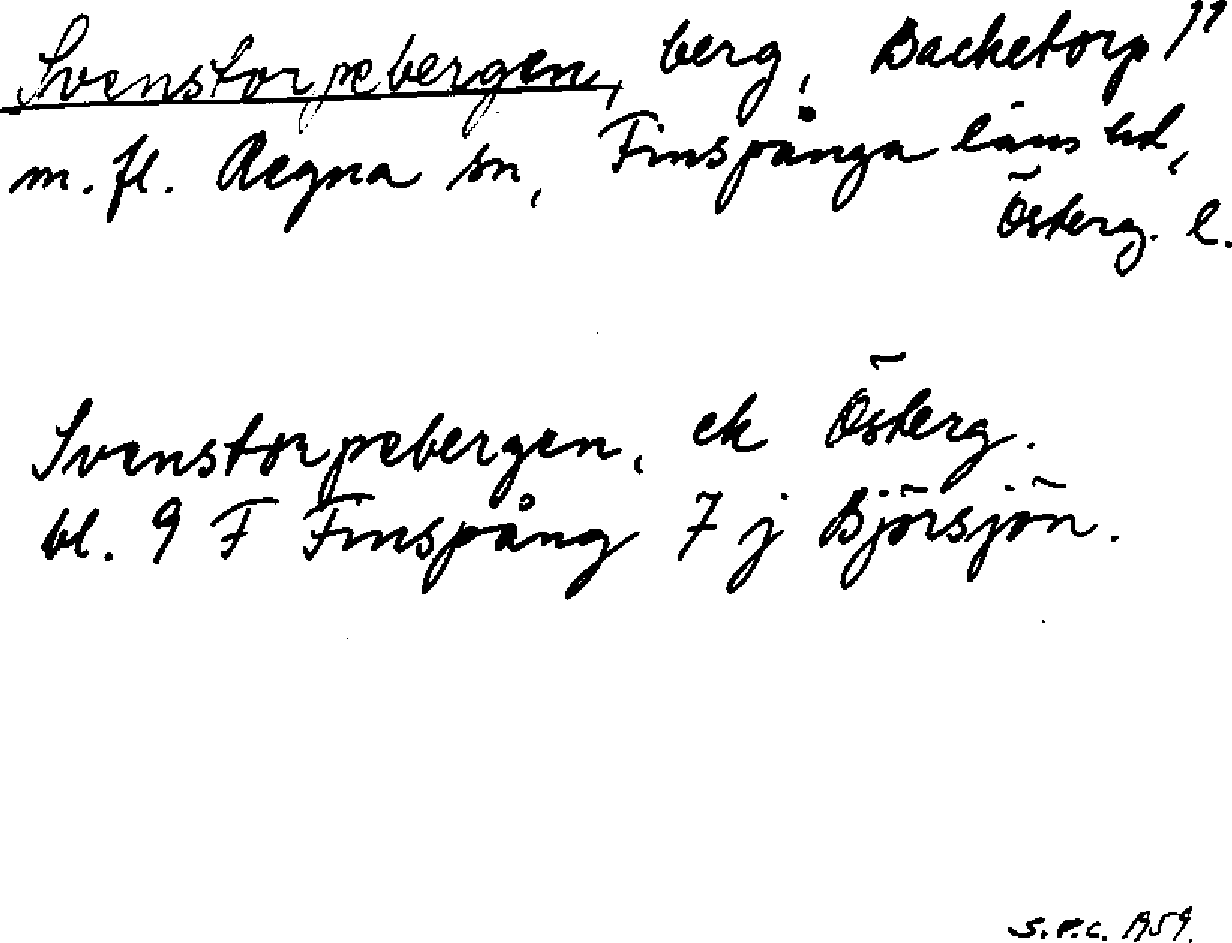 Svenstorpebergen, berg, Backetorp 1¹
m. fl. Regna sn, Finspånga läns hd,
Österg. l.
Svenstorpebergen, ek Österg.
bl. 9 F Finspång 7 j Björsjön.
S.P.C. 1959.